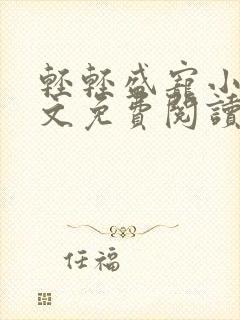 輕輕盛寵小
文免費閱讀
任福